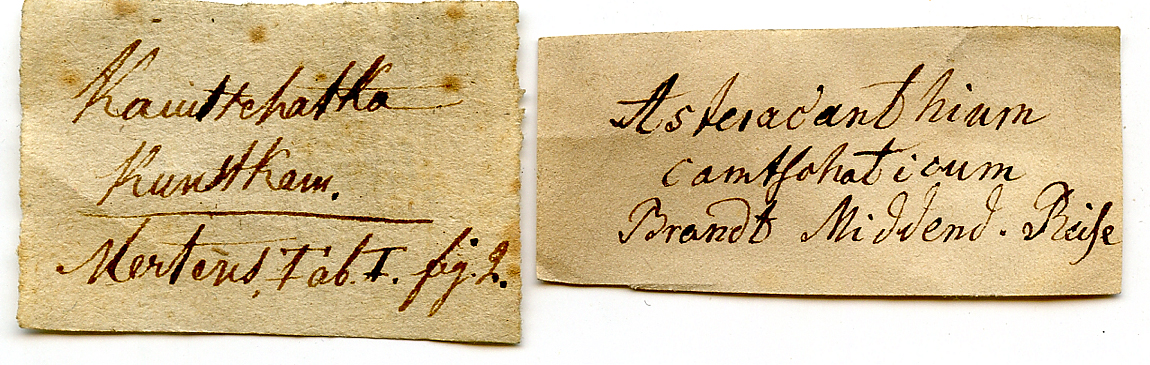 Kamtschatka
Kunstkam.
Mertens, Tab. I. fig. 2.
Asteracanthium
camtschaticum
Brandt Middend. Reise